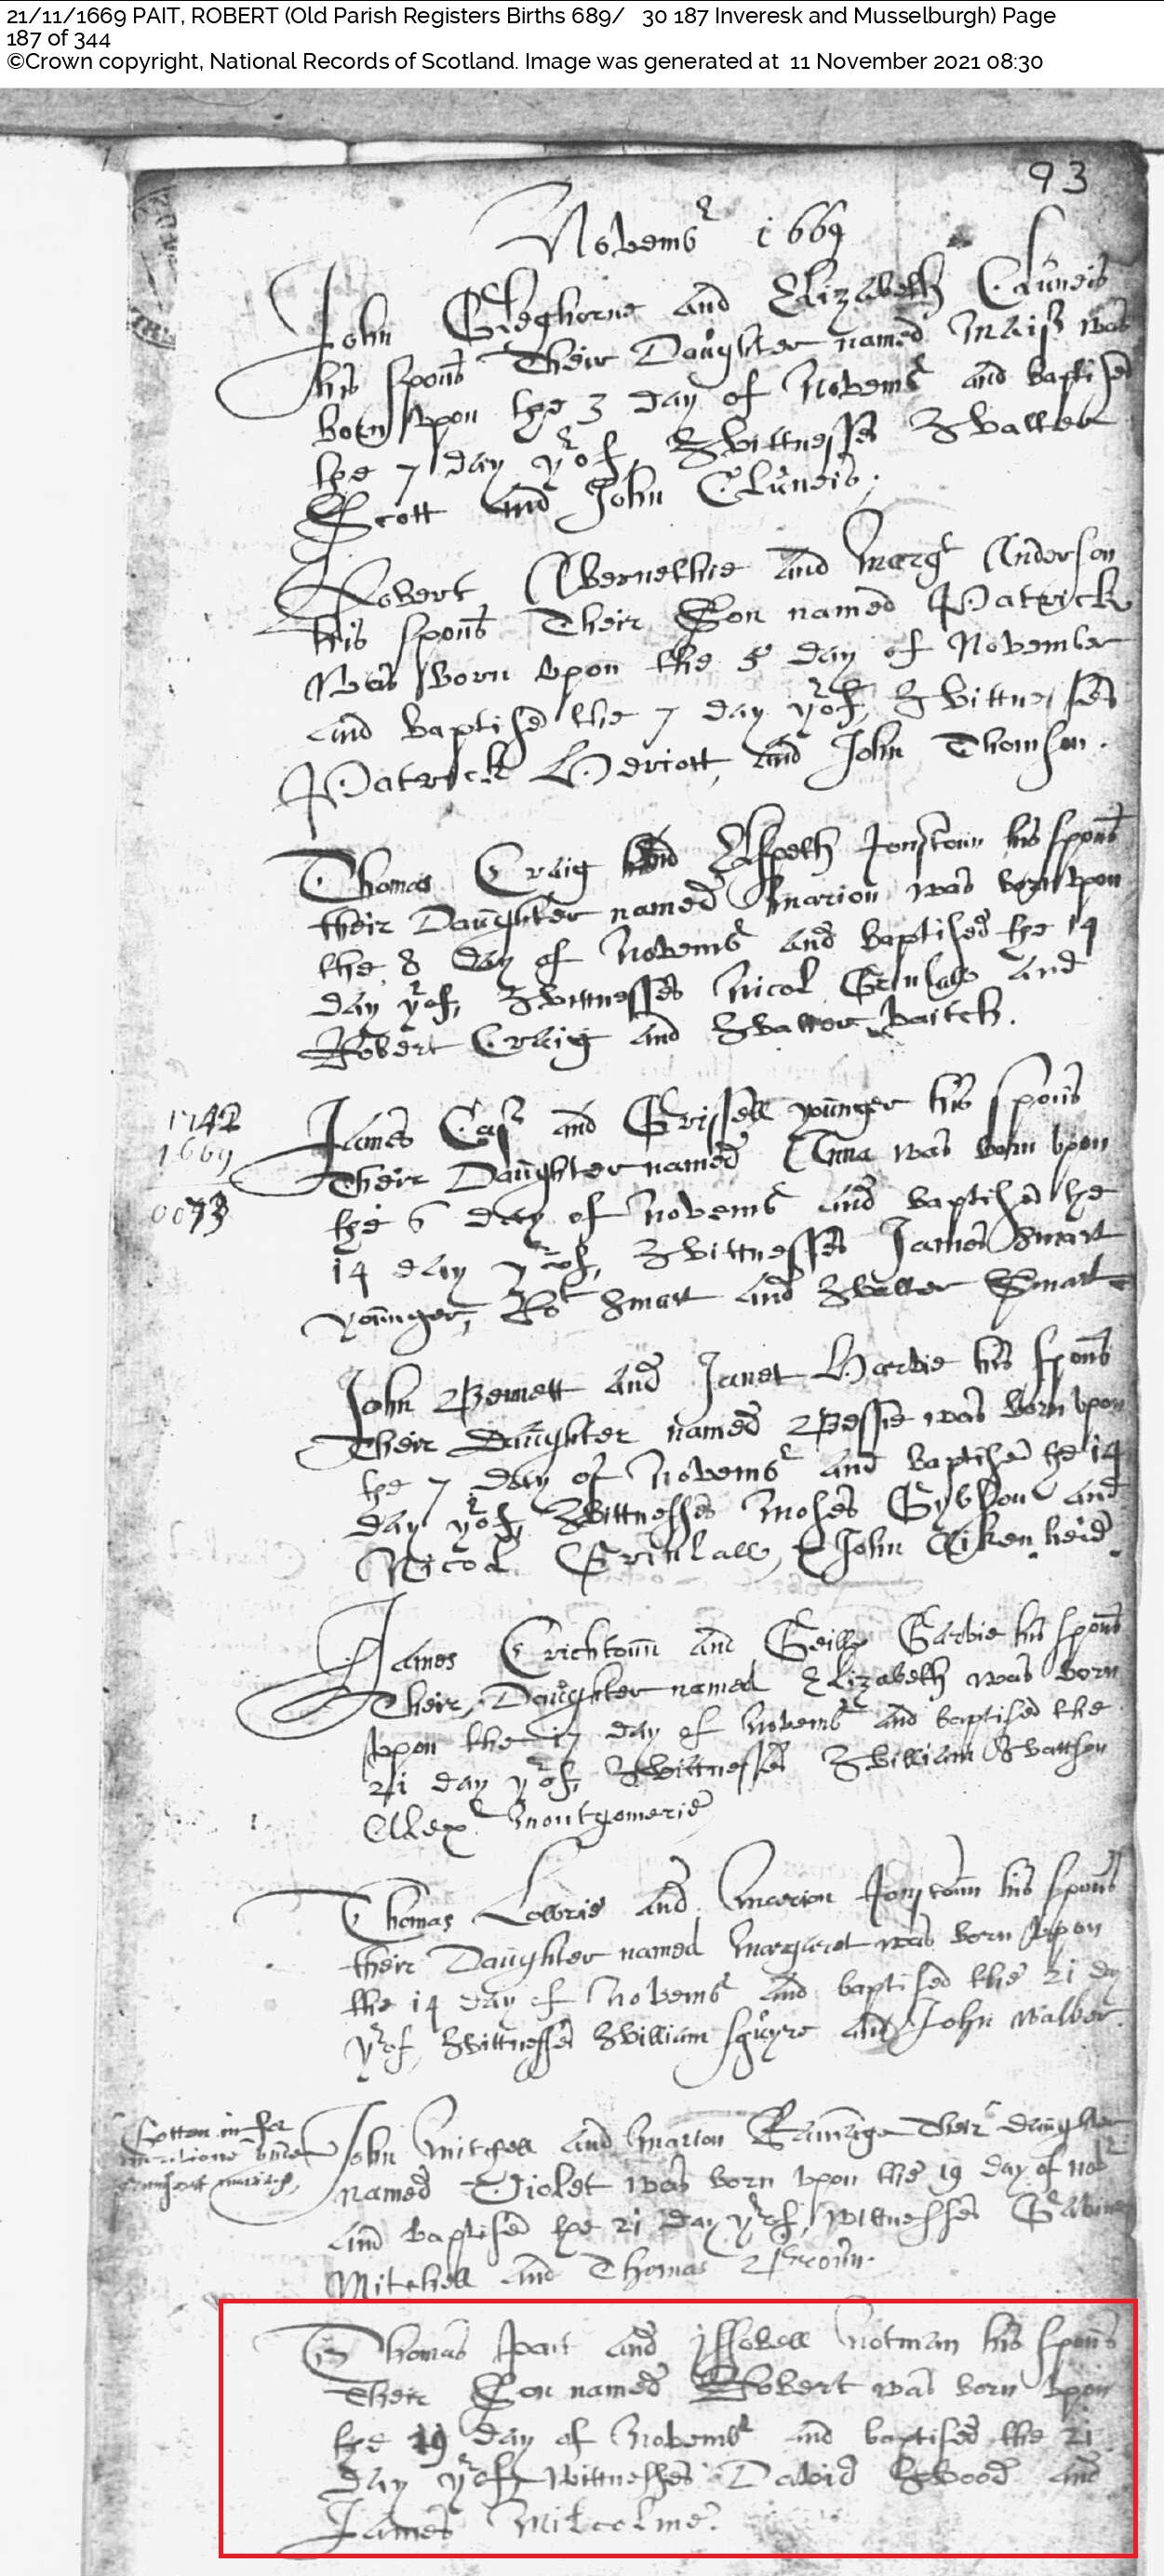 21/11/1669 PAIT, ROBERT (Old Parish Registers Births 689/ 30 187 Inveresk and Musselburgh) Page
187 of 344
©Crown copyright, National Records of Scotland. Image was generated at 11 November 2021 08:30
93
Novembr 1669
John Gleghorne and Elizabeth Cluneis
his spous Their Daughter named was
born upon the 3 day of Novembr and baptised
the 7 day yrof, Wittnesses Walter
Scott and John Cluneis;
Robert Abernethie and Margt Anderson
his spous Their Son named Patrick
Was born upon the 5 day of November
and baptised the 7 day yrof, Wittnesses
Patrick Heriott, and John Thomson.
Thomas Craig and Elspeth Jonstoun his spous
their Daughter named Marion was born upon
the 8 day of Novembr and baptised the 14
day yrof, Wittnesses Nicol and
Robert Craig and Walter
1742
1669
0073
James and Grissell younger his spous
Their Daughter named Anna was born upon
the 6 day of Novembr and baptised the
14 day yrof, Wittnesses James Smart
younger, Rot Smart and Walter Smart
John and Janet his spous
Their Daughter named Bessie was born upon
the 7 day of Novembr and baptised the 14
day yrof, Wittnesses Moses and
Nicol John Aikenheid.
James Crichtoun and Geills his spous
Their Daughter named Elizabeth was born
upon the 17 day of Novembr and baptised the
21 day yrof, Wittnesses William Wattson
Alexr Montgomerie
Thomas Lowrie and Marion Jonstoun his spous
their Daughter named Margaret was born upon
the 14 day of Novembr and baptised the 21 day
yrof, Wittnesses William Squyre and John
John Mitchell and Marion Ramage Their daughter
named Violet was born upon the 19 day of Novr
and baptised the 21 day yrof, wittnesses
Mitchell and Thomas Broun.
Thomas Pait and Issobell Notman his spous
Their Son named Robert was born upon
the 19 day of Novembr and baptised the 21
day yrof, wittnesses David Wood and
James Milcolme.